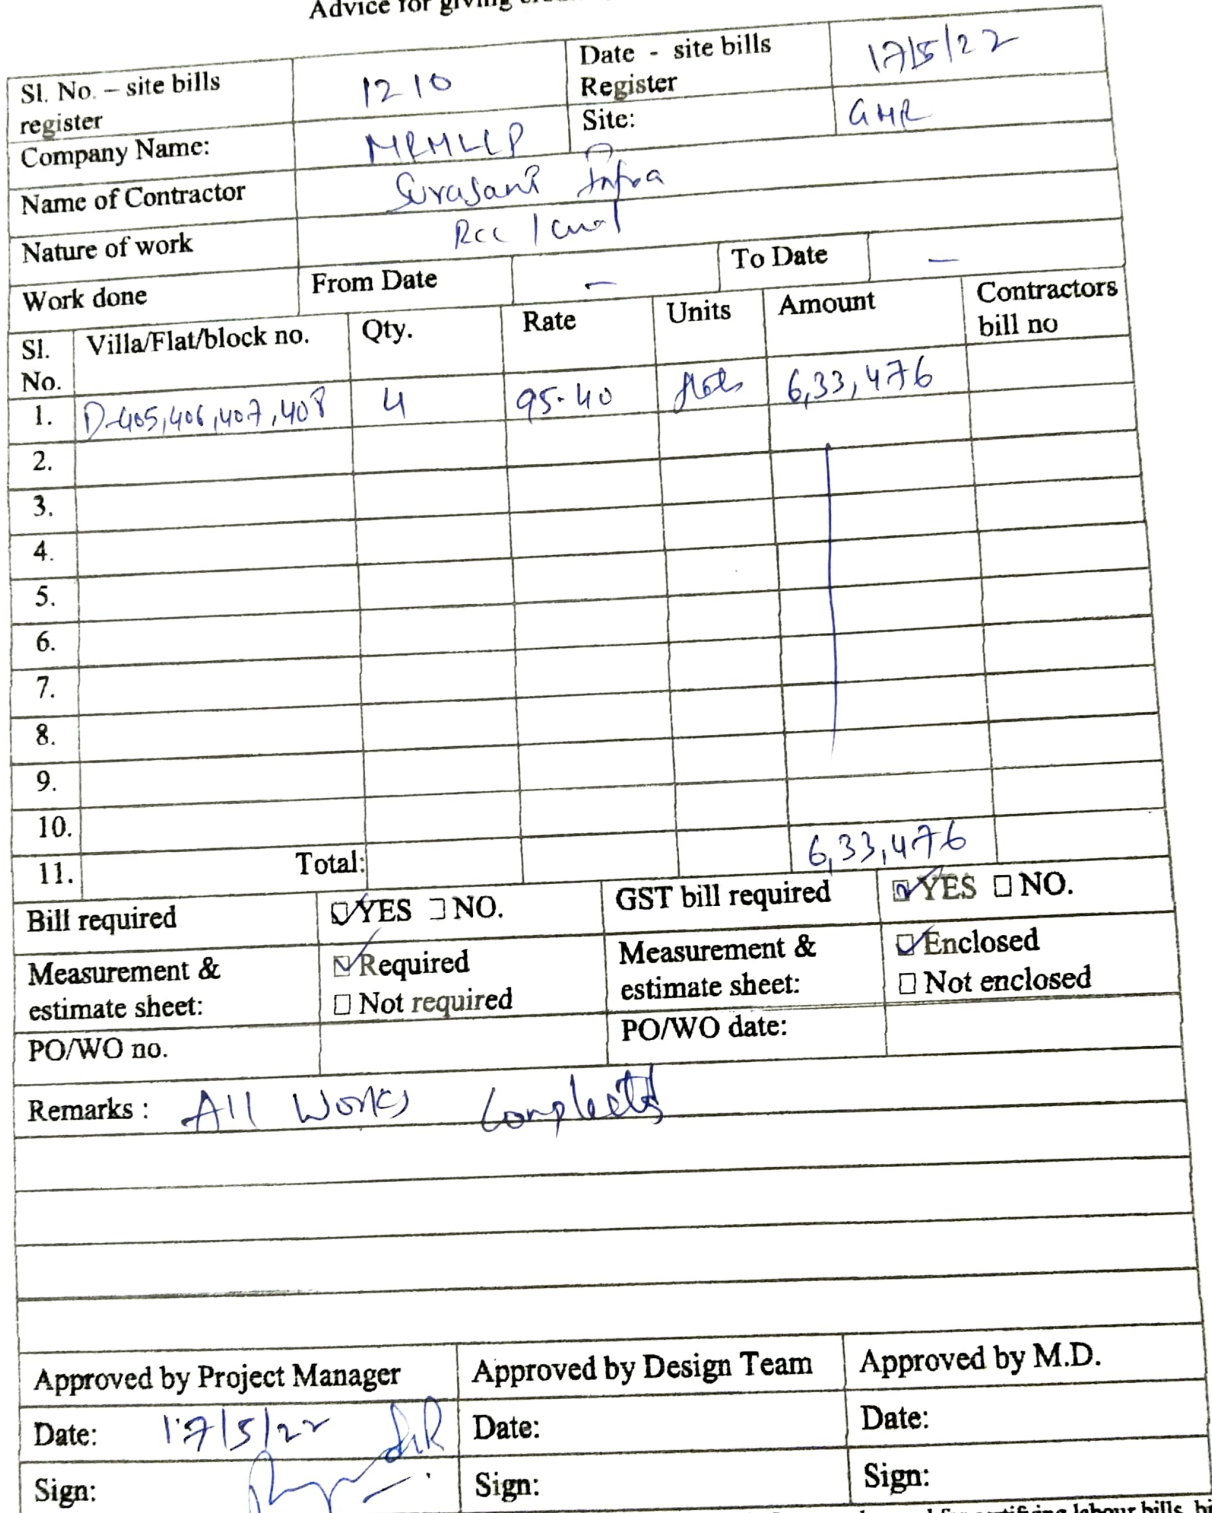 Advice for giving
Sl. No. – site bills register 1210 Date - site bills Register 17/5/22
Company Name: MRMLLP Site: GMR
Name of Contractor Surasani Infra
Nature of work Rcc / Civil
Work done From Date – To Date –
Sl. No. Villa/Flat/block no. Qty. Rate Units Amount Contractors bill no
1. D-405,406,407,408 4 95.40 flats 6,33,476
2.
3.
4.
5.
6.
7.
8.
9.
10.
11. Total: 6,33,476
Bill required ☑ YES ☐ NO. GST bill required ☑ YES ☐ NO.
Measurement & estimate sheet: ☑ Required ☐ Not required Measurement & estimate sheet: ☑ Enclosed ☐ Not enclosed
PO/WO no. PO/WO date:
Remarks : All Works
Approved by Project Manager Approved by Design Team Approved by M.D.
Date: 17/5/22 Date: Date:
Sign: Sign: Sign:
labour bills,